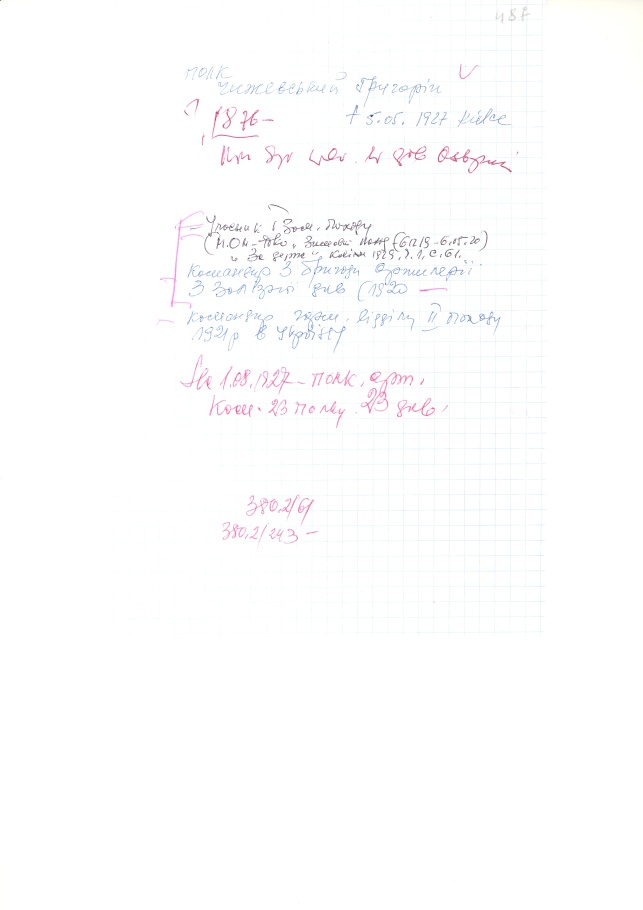 487
полк
Чижевський Григорій
1876 –
† 5.05.1927 Kielce
див
Учасник І Зим. Походу
(М. Ом-Пово, Зимовий похід (6.12.19 – 6.05.20)
"За держ" Каліш 1929, ч. 1, с. 61.
Командир 3 бригади артилерії
3 Залізної див (1920 —
командир гарм. відділу ІІ Походу
1921 р в Україну
1.08.1927 – полк. арт.
Ком. 23 полку 23 див.
380.2/61
380.2/243 –